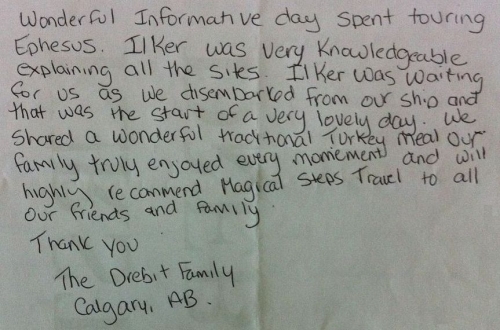 Wonderful Informative day spent touring
Ephesus. Ilker was very Knowledgeable
explaining all the sites. Ilker was waiting
for us as we disembarked from our ship and
that was the start of a very lovely day. We
shared a wonderful traditional Turkey meal our
family truly enjoyed every momement and will
highly recommend Magical Steps Travel to all
our friends and family.
Thank you
The Drebit Family
Calgary, AB.